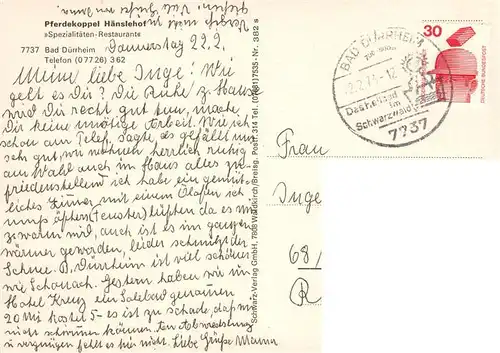 Pferdekoppel Hänslehof
»Spezialitäten-Restaurante
7737 Bad Dürrheim
Telefon (07726) 362
Donnerstag 22.2.
Meine liebe Inge! Wie
geht es Dir? Die Ruhe zu Hause
wird Dir recht gut tun, mache
Dir keine unötige Arbeit. Wie ich
schon am Telef. sagte, es gefällt uns
sehr gut, wir wohnen herrlich ruhig
am Wald auch im Haus alles zu-
friedenstellend ich habe ein gemüt-
liches Zimmer mit einem Ofen ich
muß öfters (Fenster) lüften da es mir
zu warm wird, auch ist es im ganzen
wärmer geworden, leider schmilzt der
Schnee. B. Dürrheim ist viel schöner
wie Schonach. Gestern haben wir im
Hotel Kreuz ein Solebad genommen
20 Min kostet 5- es ist zu schade, daß wir
nicht schwimmen können. An Abwechslung
u vergnügen fehlt es hier nicht. Liebe Grüße Mama.
Schwarz-Verlag GmbH, 7808 Waldkirch/Breisg. Postf. 314 Tel. (07681) 7535 · Nr. 382 s
BAD DÜRRHEIM
22.2.73-12
Das Heilbad
im
Schwarzwald
7737
30
DEUTSCHE BUNDESPOST
Frau
Inge
68/
R